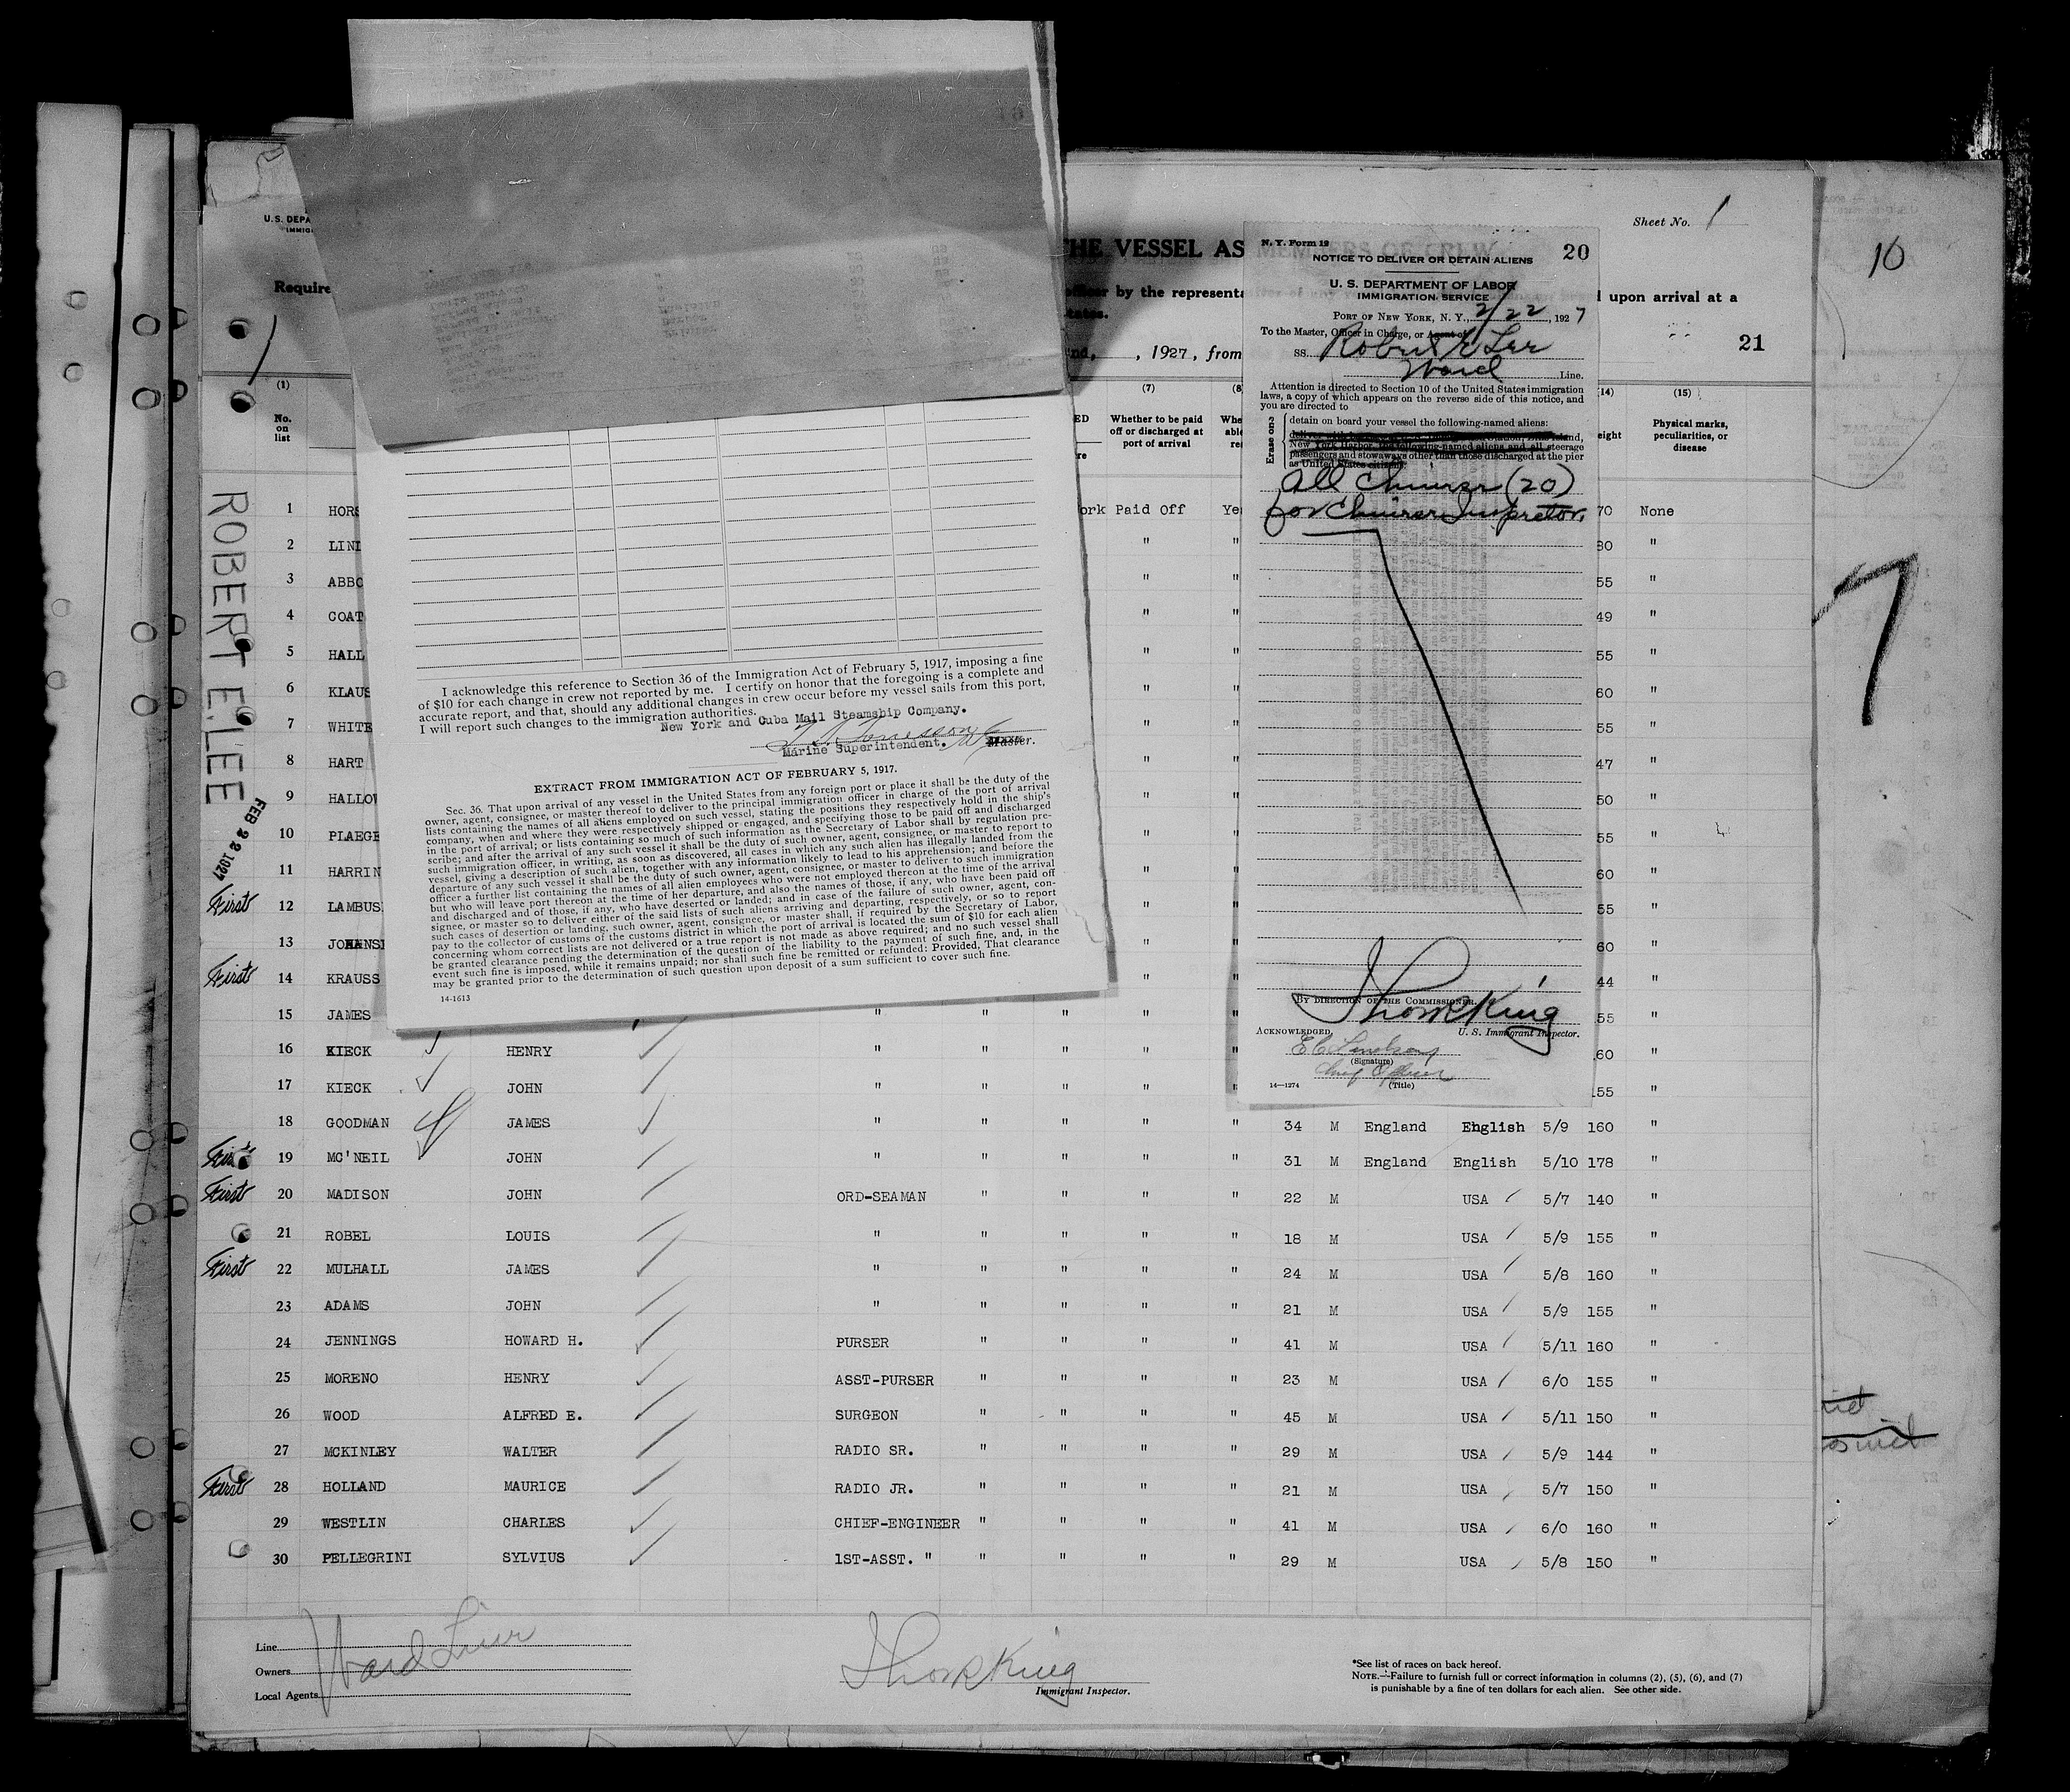 U.S. DEPA
IMMIG
Require
THE VESSEL AS
officer by the representa
, 1927, from
Sheet No. 1
upon arrival at a
21
10
7
ROBERT E. LEE
FEB 22 1927
N. Y. Form 19
20
NOTICE TO DELIVER OR DETAIN ALIENS
U. S. DEPARTMENT OF LABOR
IMMIGRATION SERVICE
PORT OF NEW YORK, N. Y., 2/22, 1927
To the Master, Officer in Charge, or Agent of
SS. Robert E Lee
Ward Line.
Attention is directed to Section 10 of the United States immigration
laws, a copy of which appears on the reverse side of this notice, and
you are directed to
Erase one
detain on board your vessel the following-named aliens:
New York Harbor, the following-named aliens and all steerage
passengers and stowaways other than those discharged at the pier
as United States citizens:
All Chinese (20)
for Chinese Inspector.
BY DIRECTION OF THE COMMISSIONER.
U. S. Immigrant Inspector.
ACKNOWLEDGED,
(Signature)
Chief Officer
(Title)
14—1274
I acknowledge this reference to Section 36 of the Immigration Act of February 5, 1917, imposing a fine
of $10 for each change in crew not reported by me. I certify on honor that the foregoing is a complete and
accurate report, and that, should any additional changes in crew occur before my vessel sails from this port,
I will report such changes to the immigration authorities.
New York and Cuba Mail Steamship Company.
Marine Superintendent. Master.
EXTRACT FROM IMMIGRATION ACT OF FEBRUARY 5, 1917.
Sec. 36. That upon arrival of any vessel in the United States from any foreign port or place it shall be the duty of the
owner, agent, consignee, or master thereof to deliver to the principal immigration officer in charge of the port of arrival
lists containing the names of all aliens employed on such vessel, stating the positions they respectively hold in the ship's
company, when and where they were respectively shipped or engaged, and specifying those to be paid off and discharged
in the port of arrival; or lists containing so much of such information as the Secretary of Labor shall by regulation pre-
scribe; and after the arrival of any such vessel it shall be the duty of such owner, agent, consignee, or master to report to
such immigration officer, in writing, as soon as discovered, all cases in which any such alien has illegally landed from the
vessel, giving a description of such alien, together with any information likely to lead to his apprehension; and before the
departure of any such vessel it shall be the duty of such owner, agent, consignee, or master to deliver to such immigration
officer a further list containing the names of all alien employees who were not employed thereon at the time of the arrival
but who will leave port thereon at the time of her departure, and also the names of those, if any, who have been paid off
and discharged and of those, if any, who have deserted or landed; and in case of the failure of such owner, agent, con-
signee, or master so to deliver either of the said lists of such aliens arriving and departing, respectively, or so to report
such cases of desertion or landing, such owner, agent, consignee, or master shall, if required by the Secretary of Labor,
pay to the collector of customs of the customs district in which the port of arrival is located the sum of $10 for each alien
concerning whom correct lists are not delivered or a true report is not made as above required; and no such vessel shall
be granted clearance pending the determination of the question of the liability to the payment of such fine, and, in the
event such fine is imposed, while it remains unpaid; nor shall such fine be remitted or refunded: Provided, That clearance
may be granted prior to the determination of such question upon deposit of a sum sufficient to cover such fine.
14-1613
(1) (7) (8 (14) (15)
No. on list
Whether to be paid off or discharged at port of arrival
Physical marks, peculiarities, or disease
1 HORS ork Paid Off Ye 70 None
2 LIND " " 80 "
3 ABBO " " 55 "
4 COAT " " 49 "
5 HALL " " 55 "
6 KLAUS " " 60 "
7 WHITE " " 55 "
8 HART " " 47 "
9 HALLOW " " 50 "
10 PLAEGE " " 55 "
11 HARRIN " " 60 "
First 12 LAMBUS " " 55 "
13 JOHANSE " " 60 "
First 14 KRAUSS " " 44 "
15 JAMES " " " " " 55 "
16 KIECK HENRY " " " " " 60 "
17 KIECK JOHN " " " " " 155 "
18 GOODMAN JAMES " " " " " 34 M England English 5/9 160 "
First 19 MC'NEIL JOHN " " " " " 31 M England English 5/10 178 "
First 20 MADISON JOHN ORD-SEAMAN " " " " 22 M USA 5/7 140 "
21 ROBEL LOUIS " " " " " 18 M USA 5/9 155 "
First 22 MULHALL JAMES " " " " " 24 M USA 5/8 160 "
23 ADAMS JOHN " " " " " 21 M USA 5/9 155 "
24 JENNINGS HOWARD H. PURSER " " " " 41 M USA 5/11 160 "
25 MORENO HENRY ASST-PURSER " " " " 23 M USA 6/0 155 "
26 WOOD ALFRED E. SURGEON " " " " 45 M USA 5/11 150 "
27 MCKINLEY WALTER RADIO SR. " " " " 29 M USA 5/9 144 "
First 28 HOLLAND MAURICE RADIO JR. " " " " 21 M USA 5/7 150 "
29 WESTLIN CHARLES CHIEF-ENGINEER " " " " 41 M USA 6/0 160 "
30 PELLEGRINI SYLVIUS 1ST-ASST. " " " " " 29 M USA 5/8 150 "
Line
Owners Ward Line
Local Agents
Immigrant Inspector.
*See list of races on back hereof.
NOTE.—Failure to furnish full or correct information in columns (2), (5), (6), and (7)
is punishable by a fine of ten dollars for each alien. See other side.